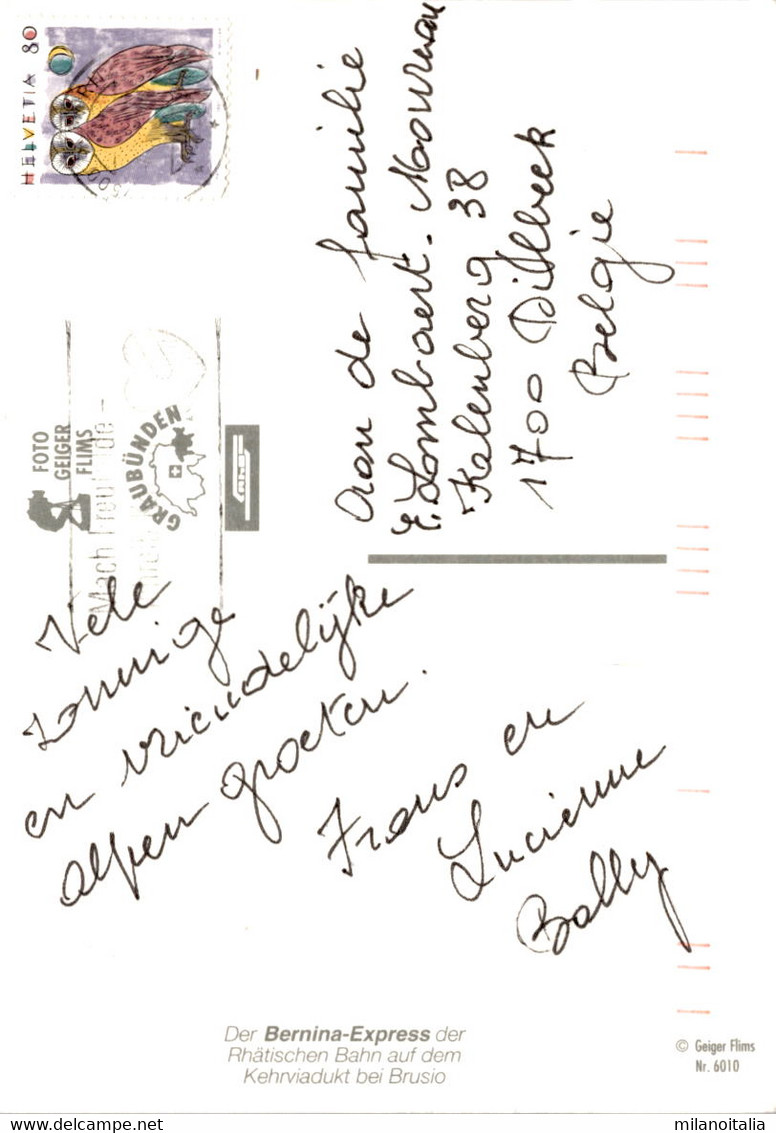 HELVETIA 80
FOTO
GEIGER
FLIMS
GRAUBÜNDEN
Aan de familie
E. Lombaert. Moureau
Kalenberg 38
1700 Dilbeek
Belgie
Vele
zonnige
en vriendelijke
alpen groeten.
Frans en
Lucienne
Bally
Der Bernina-Express der
Rhätischen Bahn auf dem
Kehrviadukt bei Brusio
© Geiger Flims
Nr. 6010
delcampe.net
milanoitalia